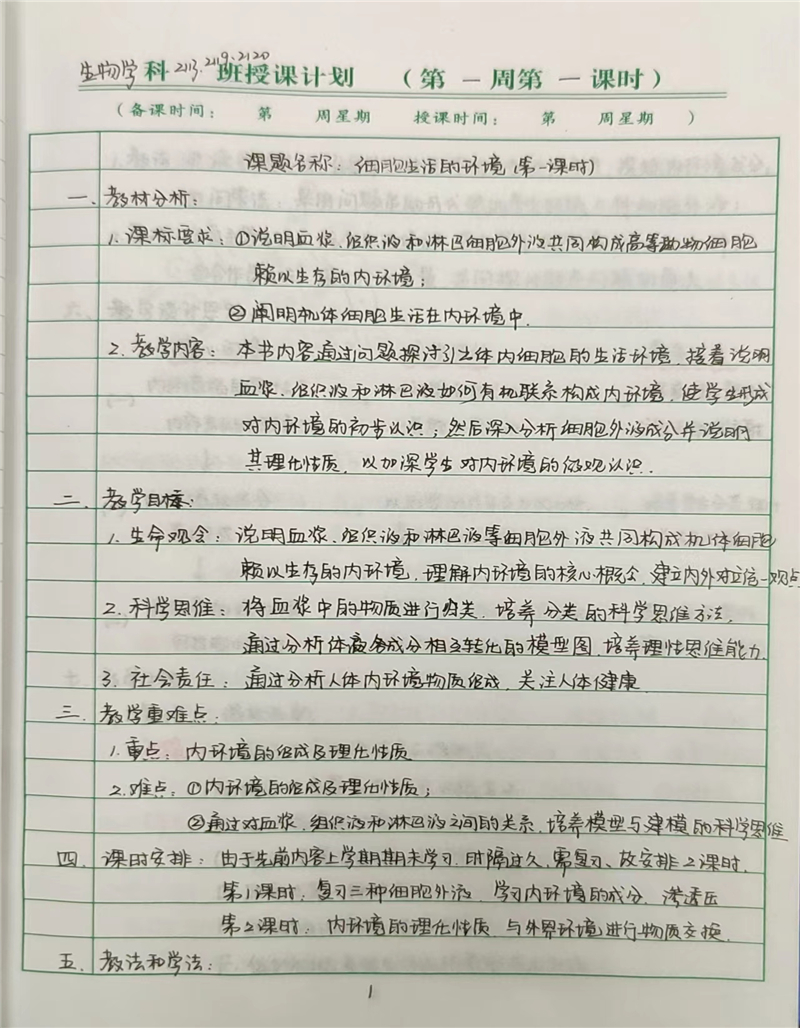 生物学科2113.2119.2120班授课计划 （第一周第一课时）
（备课时间： 第 周星期 授课时间： 第 周星期 ）
课题名称：细胞生活的环境（第一课时）
一、教材分析：
1.课标要求：①说明血浆、组织液和淋巴细胞外液共同构成高等动物细胞
赖以生存的内环境；
②阐明机体细胞生活在内环境中.
2.教学内容：本书内容通过问题探讨引出体内细胞的生活环境，接着说明
血浆、组织液和淋巴液如何有机联系构成内环境，使学生形成
对内环境的初步认识；然后深入分析细胞外液成分并说明
其理化性质，以加深学生对内环境的微观认识.
二、教学目标：
1.生命观念：说明血浆、组织液和淋巴液等细胞外液共同构成机体细胞
赖以生存的内环境，理解内环境的核心概念，建立内外对立统一观点
2.科学思维：将血浆中的物质进行归类，培养分类的科学思维方法，
通过分析体液各成分相互转化的模型图，培养理性思维能力.
3.社会责任：通过分析人体内环境物质组成，关注人体健康.
三、教学重难点：
1.重点：内环境的组成及理化性质
2.难点：①内环境的组成及理化性质；
②通过对血浆、组织液和淋巴液之间的关系，培养模型与建模的科学思维
四、课时安排：由于先前内容上学期期末学习，时隔过久，需复习、故安排2课时.
第1课时：复习三种细胞外液，学习内环境的成分、渗透压
第2课时：内环境的理化性质，与外界环境进行物质交换.
五、教法和学法：
1